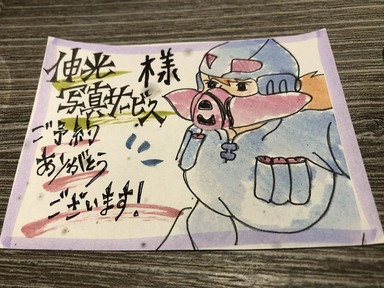 伸光 様
写真サービス
ご予約
ありがとう
ございます!